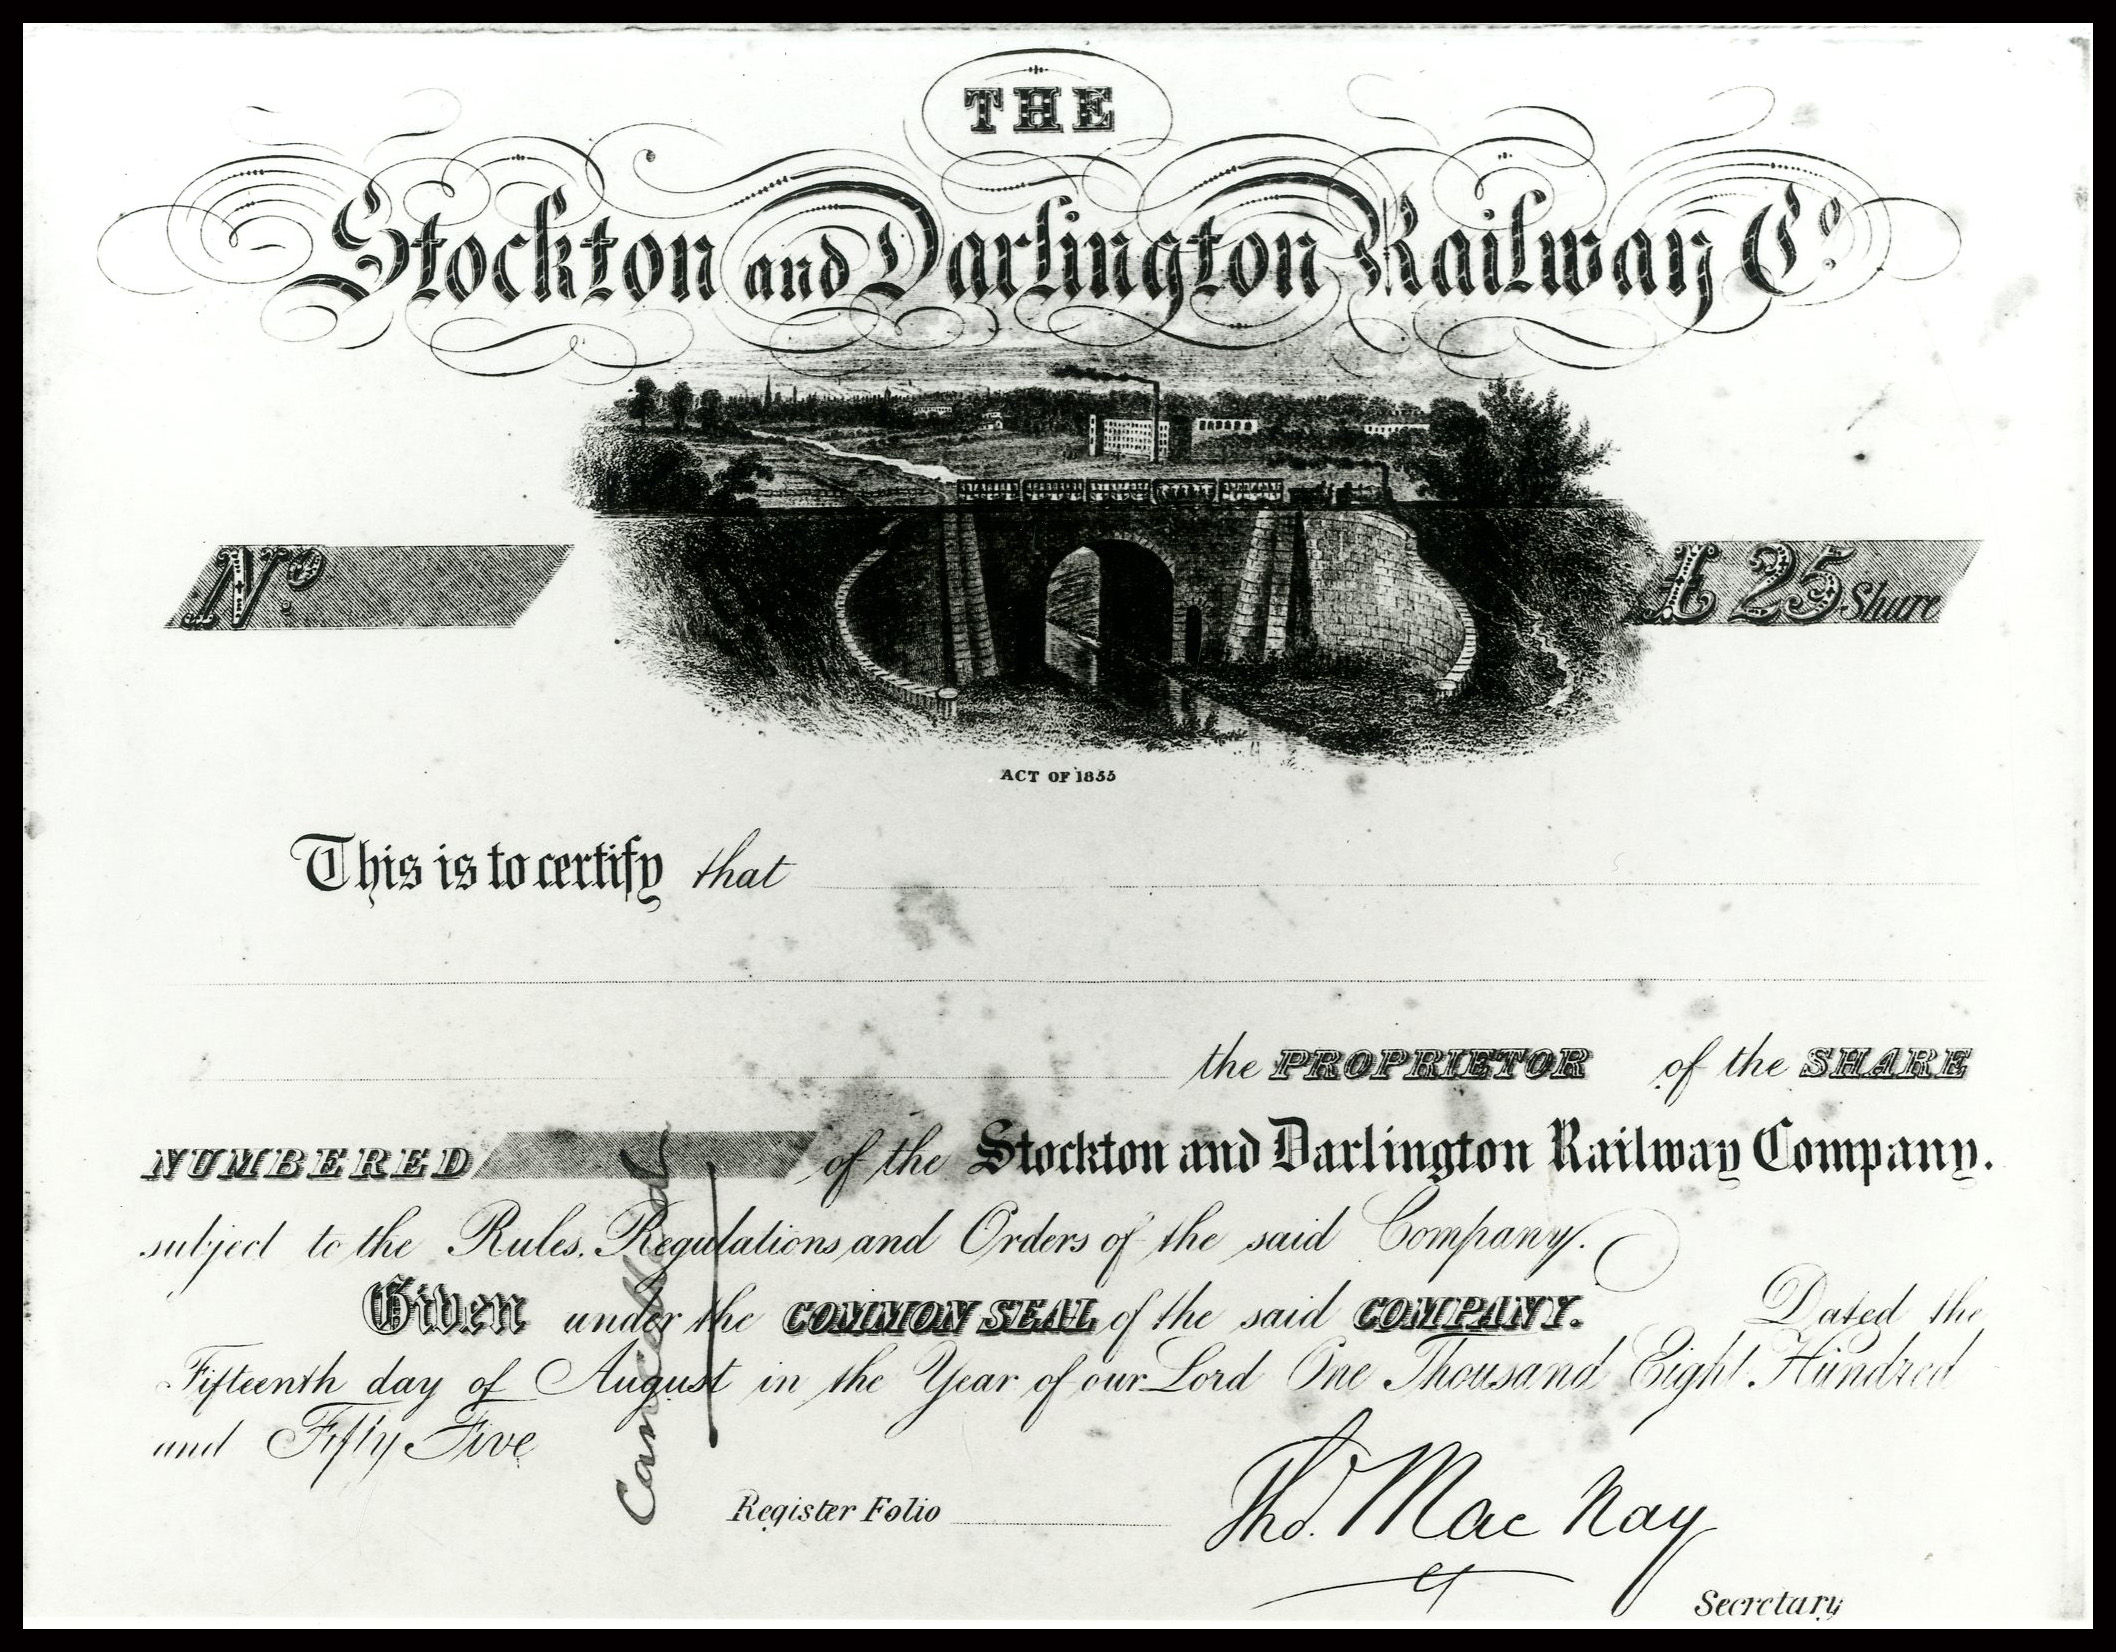 THE
Stockton and Darlington Railway Co.
No.
£ 25 Share
ACT OF 1855
This is to certify that
the PROPRIETOR of the SHARE
NUMBERED of the Stockton and Darlington Railway Company.
subject to the Rules, Regulations and Orders of the said Company.
Given under the COMMON SEAL of the said COMPANY. Dated the
Fifteenth day of August in the Year of our Lord One Thousand Eight Hundred
and Fifty Five
Cancelled
Register Folio
Tho. Mac Nay
Secretary